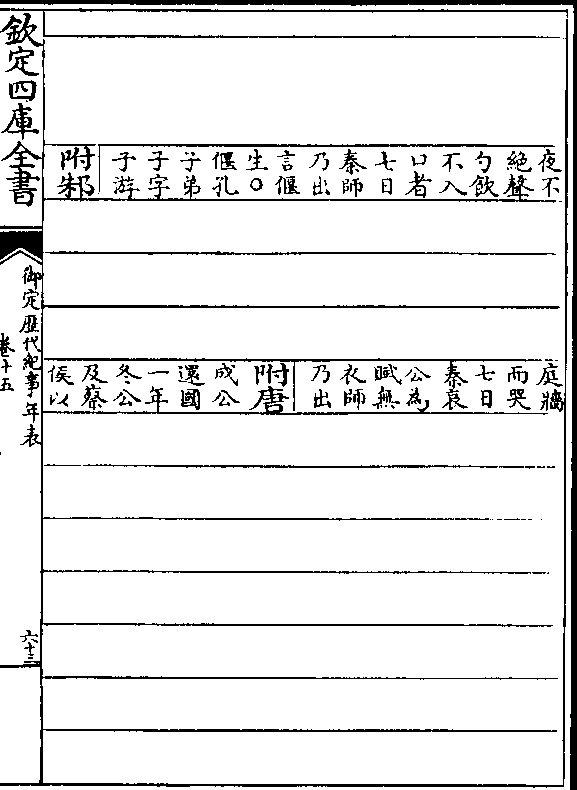 夜不
絶聲
勺飲
不入
口者
七日
秦師
乃出
言偃
生○
偃孔
子弟
子字
子游
附邾
庭牆
而哭
七日
秦哀
公為
賦無
衣師
乃出
附唐
成公
還國
一年
冬公
及蔡
侯以
欽定四庫全書
御定歴代紀事年表
卷十五
六十三